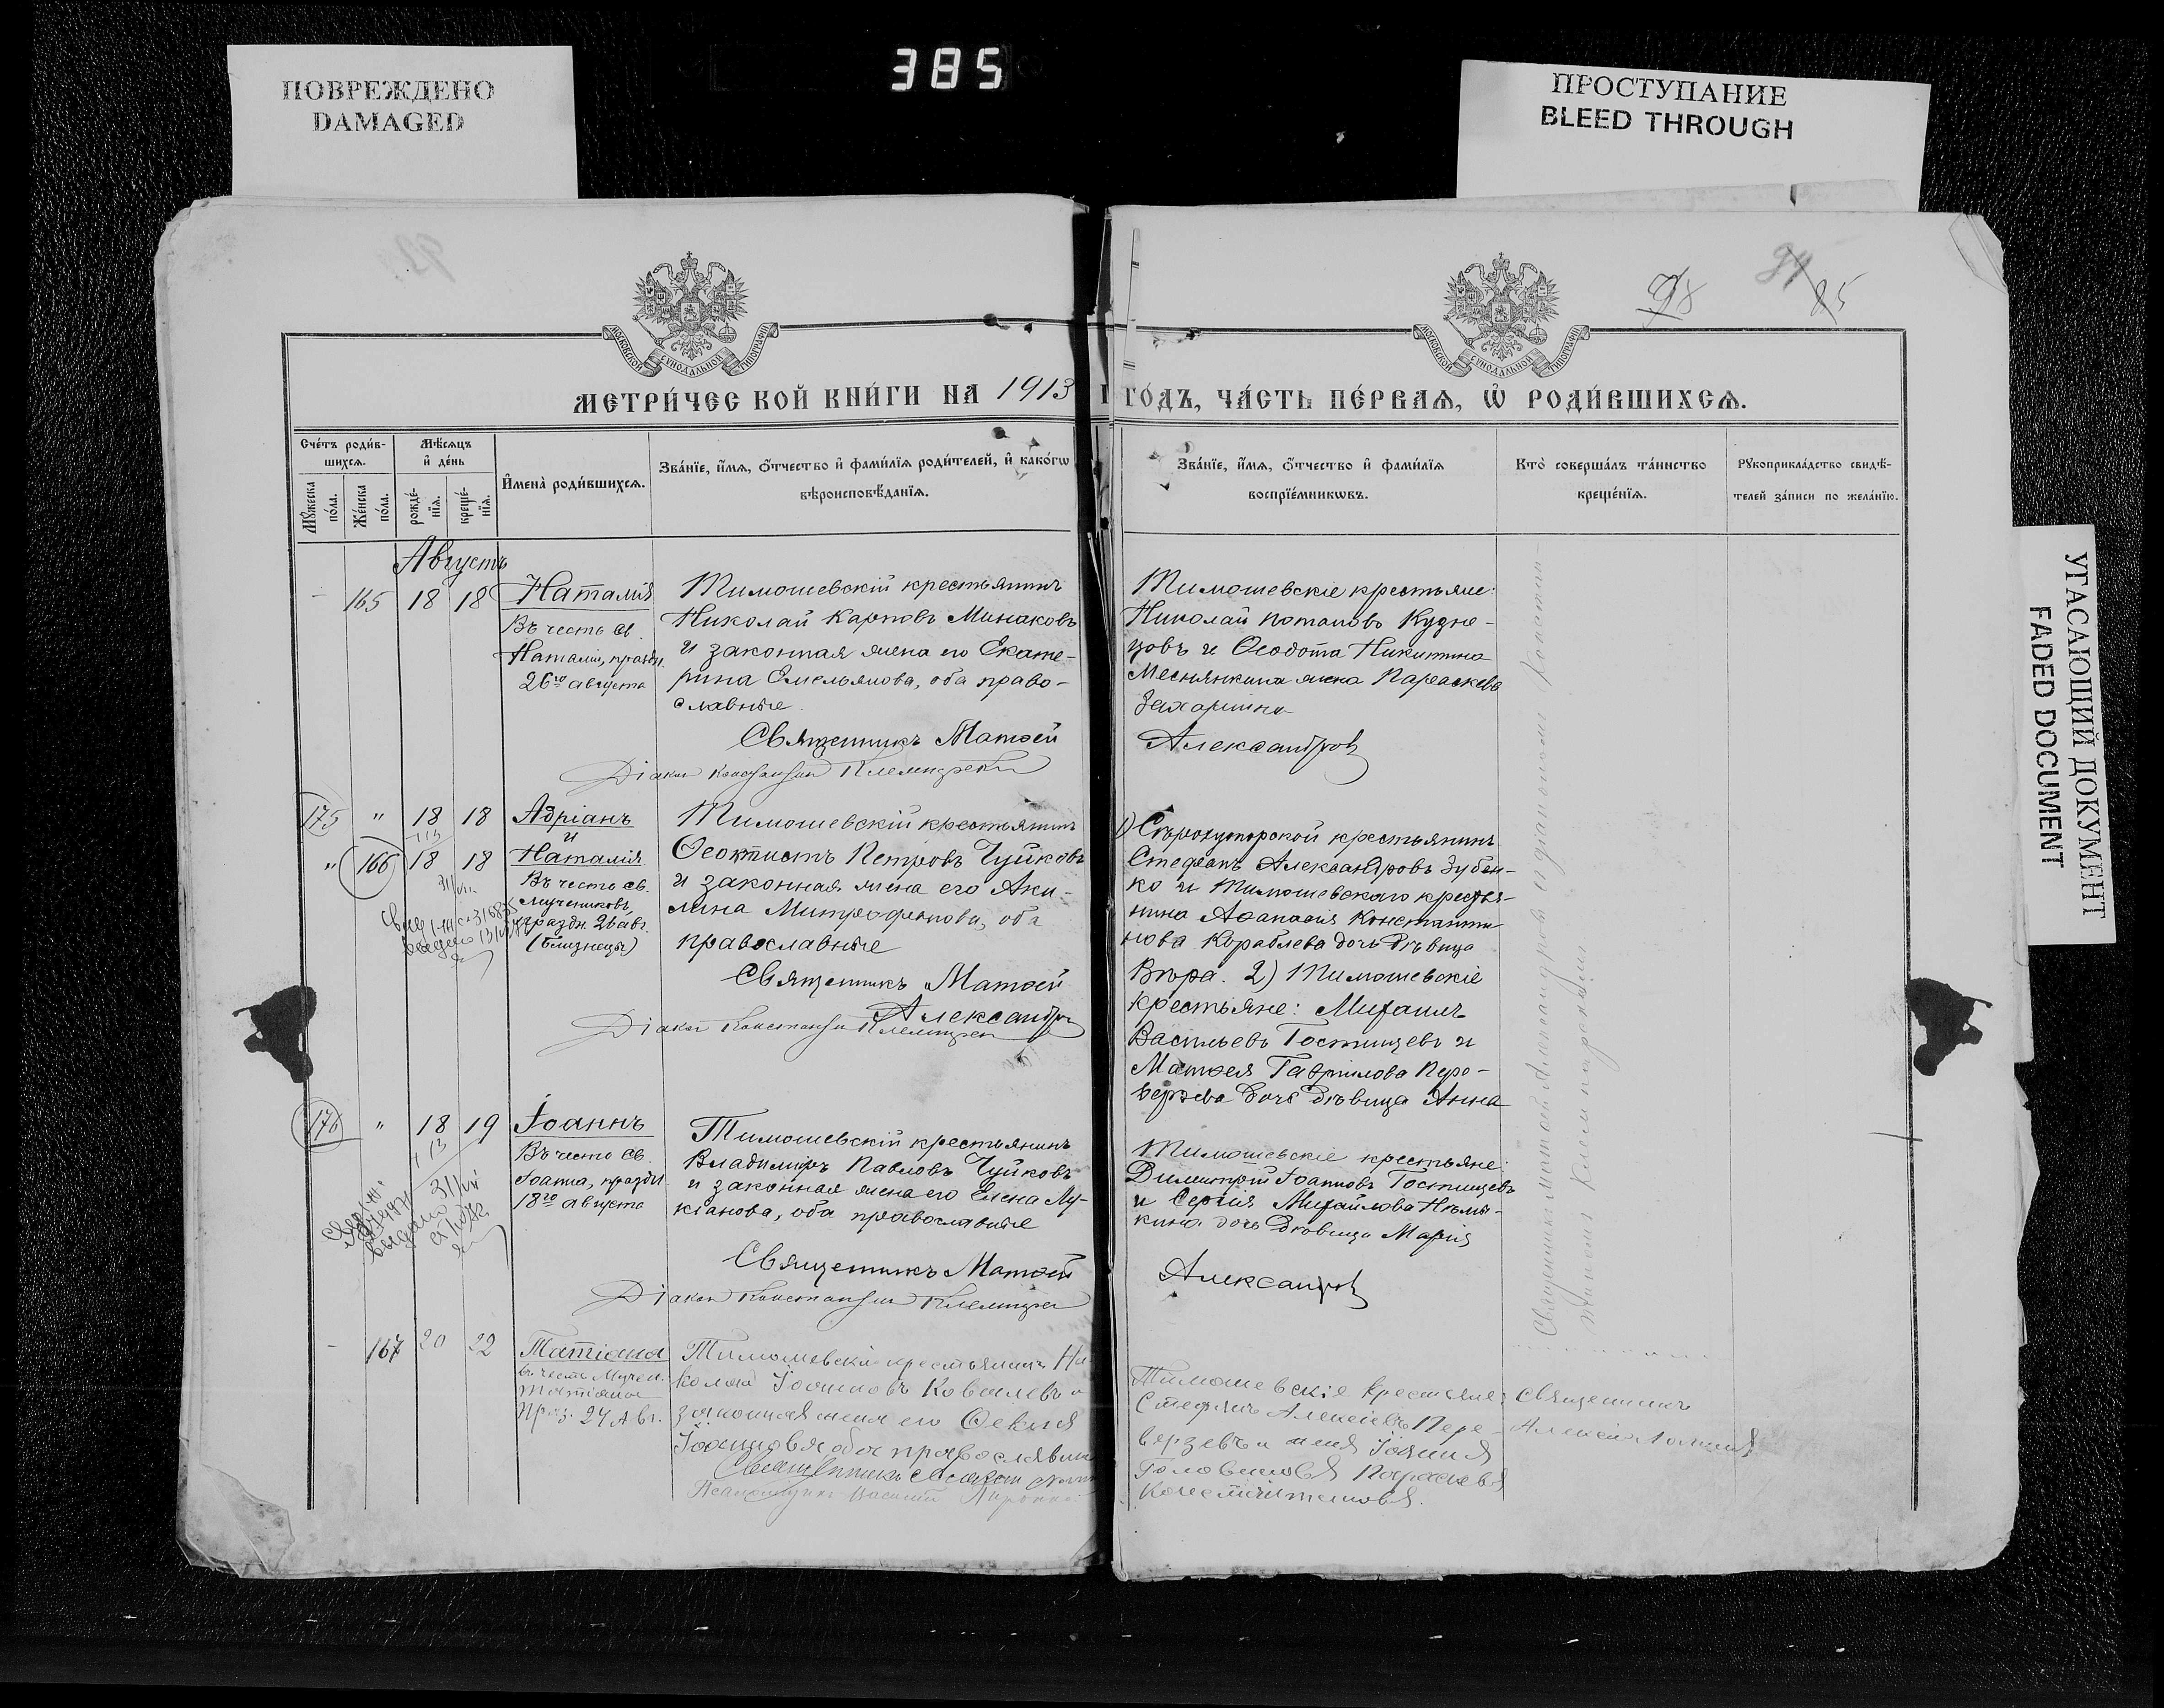 385
ПОВРЕЖДЕНО
DAMAGED
ПРОСТУПАНИЕ
BLEED THROUGH
УГАСАЮЩИЙ ДОКУМЕНТ
FADED DOCUMENT
85
МОСКОВСКОЙ СѴНОДАЛЬНОЙ ТИПОГРАФІИ
МОСКОВСКОЙ СѴНОДАЛЬНОЙ ТИПОГРАФІИ
МЕТРИ́ЧЕСКОЙ КНИ́ГИ НА 1913 ГО́ДЪ, ЧА́СТЬ ПЕ́РВАѦ, Ѡ҆ РОДИ́ВШИХСѦ.
Сче́тъ роди́в-
шихсѧ.
Мѣ́сѧцъ
и҆ де́нь
Мꙋ́жеска
по́ла.
Же́нска
по́ла.
рожде́-
нїѧ.
креще́-
нїѧ.
И҆мена̀ роди́вшихсѧ.
Зва́нїе, и҆́мѧ, ѻ҆́тчество и҆ фами́лїѧ роди́телей, и҆ како́гѡ
вѣроисповѣ́данїѧ.
Зва́нїе, и҆́мѧ, ѻ҆́тчество и҆ фами́лїѧ
воспрїе́мникѡвъ.
Кто̀ соверша́лъ та́инство
креще́нїѧ.
Рꙋкоприкла́дство свидѣ́-
телей за́писи по жела́нїю.
Августъ
165 18 18 Наталія
Въ честь св.
Наталіи, праздн.
26го августа
Тимошевскій крестьянинъ
Николай Карповъ Минаковъ
и законная жена его Екате-
рина Емельянова, оба право-
славные.
Священникъ Матѳей
Діаконъ Константинъ
Тимошевскіе крестьяне:
Николай Потаповъ Кузне-
цовъ и Ѳеодота Никитина
жена Параскева
Захарина
Александровъ
175 " 18 18 Адріанъ
и
" 166 18 18 Наталія
Въ честь св.
мучениковъ,
праздн. 26 авг.
(близнецы)
Тимошевскій крестьянинъ
Ѳеоктистъ Петровъ Чуйковъ
и законная жена его Аки-
лина Митрофанова, оба
православные
Священникъ Матѳей
Александровъ
Діаконъ Константинъ
1) крестьянинъ
Стефанъ Александровъ Зубен-
ко и Тимошевскаго крестья-
нина Аѳанасія Константи-
нова Кораблева дочь дѣвица
Вѣра. 2) Тимошевскіе
крестьяне: Михаилъ
Васильевъ Гостищевъ и
Матѳея Гаврилова Пере-
верзева дочь дѣвица Анна
176 " 18 19 Іоаннъ
Въ честь св.
Іоанна, праздн.
18го августа
Тимошевскій крестьянинъ
Владиміръ Павловъ Чуйковъ
и законная жена его Елена Лу-
кіанова, оба православные
Священникъ Матѳей
Діаконъ Константинъ
Тимошевскіе крестьяне:
Димитрій Іоанновъ Гостищевъ
и Сергія Михайлова
кина дочь дѣвица Марія
Александровъ
167 20 22 Татіана
въ честь Мучен.
Татіаны
Праз. 24 Авг.
Тимошевскій крестьянинъ Ни-
колай Іоанновъ Ковалевъ и
законная жена его Ѳекла
Іоаннова оба православные
Священникъ
Псаломщикъ Василій
Тимошевскіе крестьяне:
Стефанъ Алексіевъ Пере-
верзевъ и жена Іоанна
Параскева
Константинова.
Священникъ
Алексій